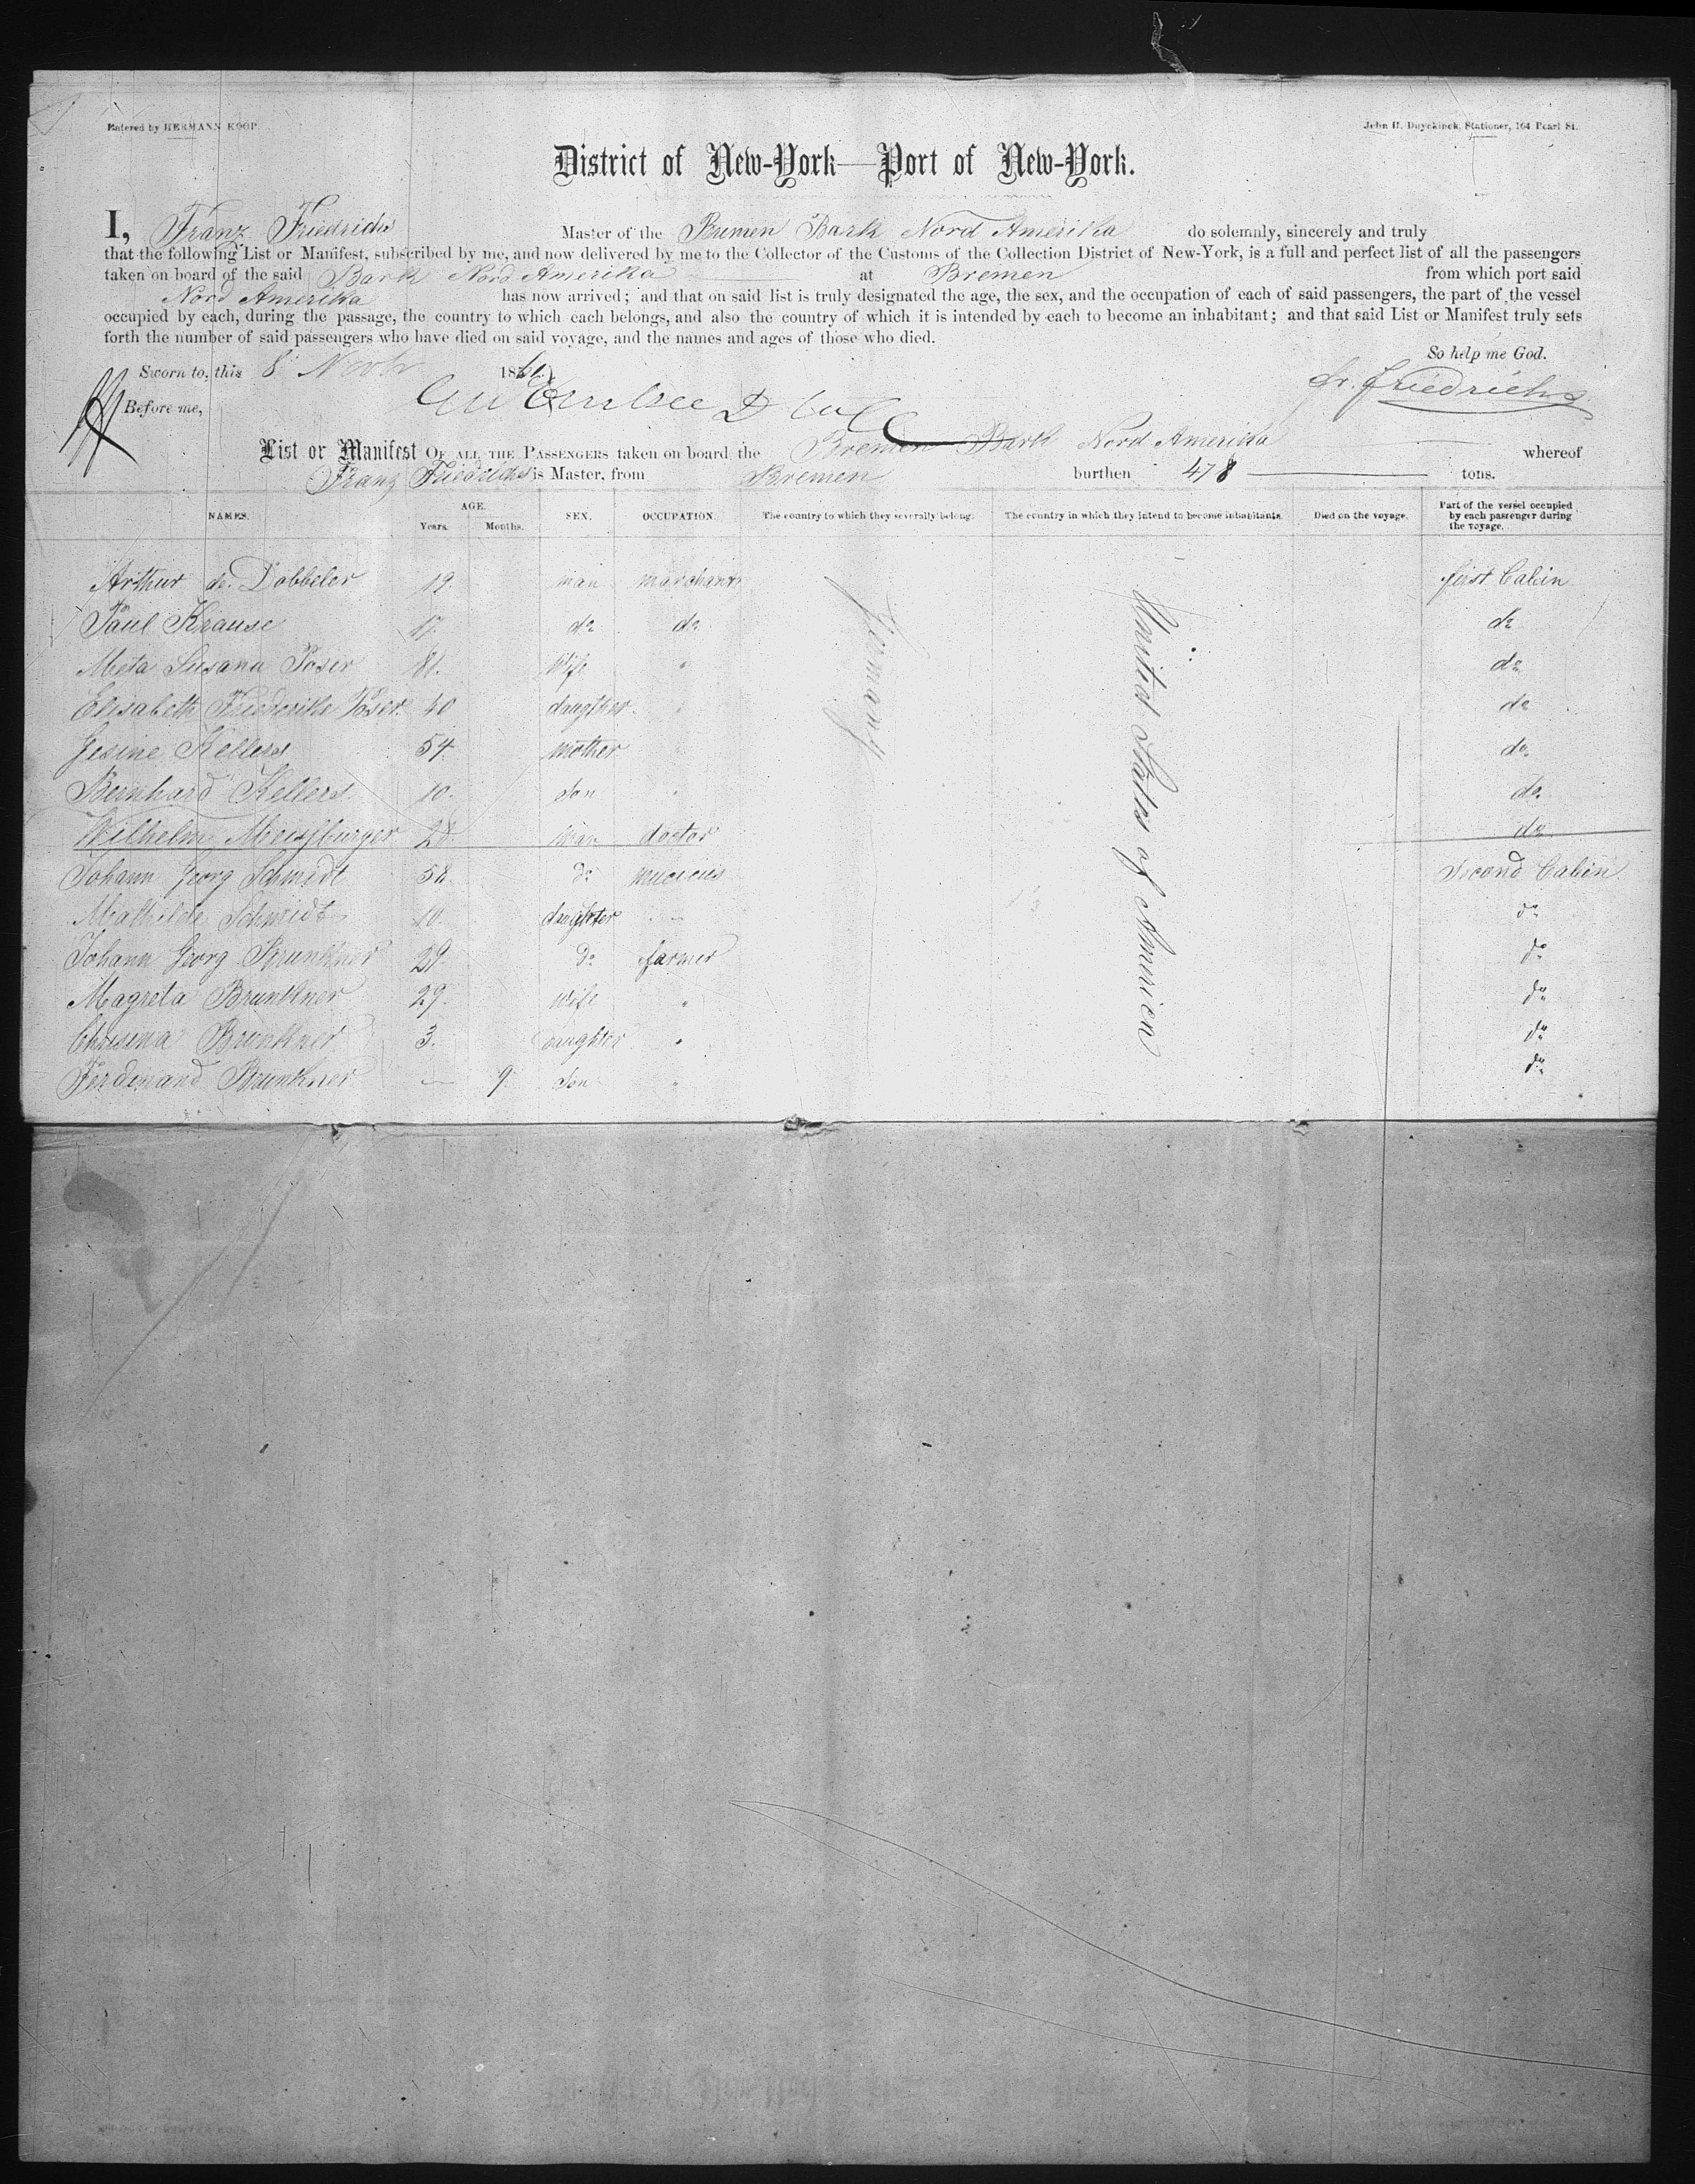 Entered by HERMANN KOOP.
John H. Duyckinck, Stationer, 164 Pearl St.
District of New-York—Port of New-York.
I, Franz Friedrichs Master of the Bremen Bark Nord Amerika do solemnly, sincerely and truly
that the following List or Manifest, subscribed by me, and now delivered by me to the Collector of the Customs of the Collection District of New-York, is a full and perfect list of all the passengers
taken on board of the said Bark Nord Amerika at Bremen from which port said
Nord Amerika has now arrived; and that on said list is truly designated the age, the sex, and the occupation of each of said passengers, the part of the vessel
occupied by each, during the passage, the country to which each belongs, and also the country of which it is intended by each to become an inhabitant; and that said List or Manifest truly sets
forth the number of said passengers who have died on said voyage, and the names and ages of those who died.
So help me God.
Sworn to, this 8 Novbr 186
Fr. Friedrichs
Before me,
List or Manifest OF ALL THE PASSENGERS taken on board the Bremen Bark Nord Amerika whereof
Franz Friedrichs is Master, from Bremen burthen 478 tons.
NAMES. AGE. Years. Months. SEX. OCCUPATION. The country to which they severally belong. The country in which they intend to become inhabitants. Died on the voyage. Part of the vessel occupied by each passenger during the voyage.
Arthur de. Dobbeler 19. man marchant first Cabin
Paul Krause 17. do do do
Meta Susana Poser 81. Wife " do
Elisabeth Friederike Poser. 40 daugther do
Gesine Kellers 54. mother do
Bernhard Kellers. 10. Son do
Wilhelm 28. man doctor do
Johann Georg Schmidt 58. do Second Cabin
Mathilde Schmidt 10. daughter do
Johann Georg Brunkner 29. do farmer do
Magreta Brunkner 29. Wife " do
Brunkner 3. daughter " do
Ferdinand Brunkner — 9. Son " do
Germany
United States of America